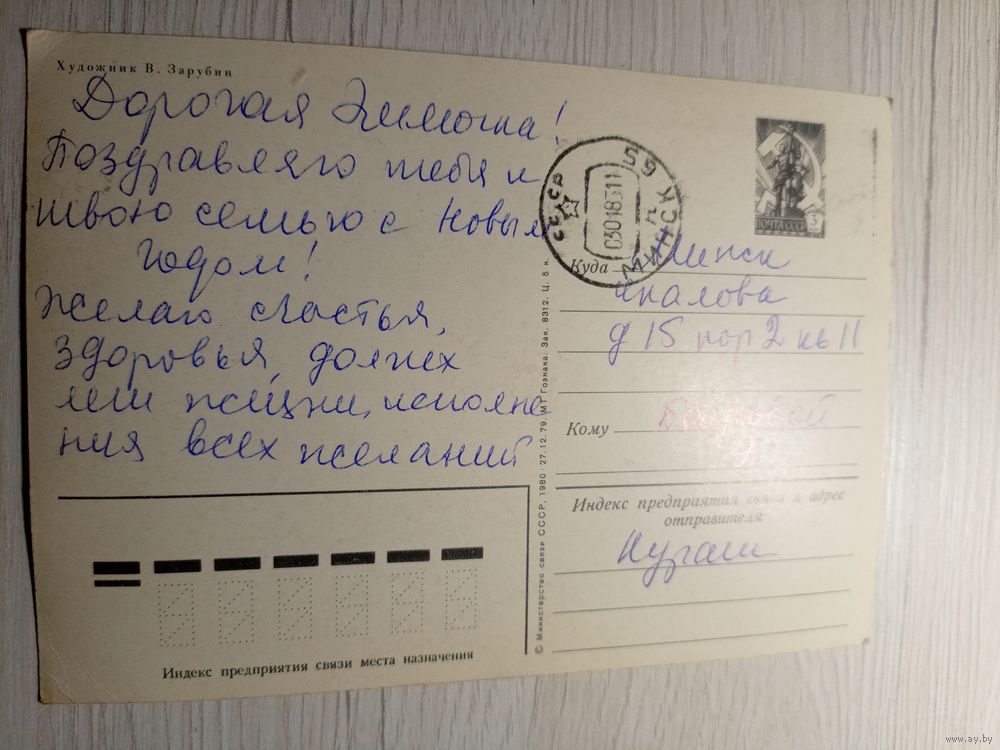 Художник В. Зарубин
Дорогая Эммочка!
Поздравляю тебя и
твою семью с Новым
годом!
Желаю счастья,
здоровья, долгих
лет жизни, исполне
ния всех желаний
СССР
МИНСК 59
ПОЧТА СССР
3
Куда Минск
Чкалова
д 15 кор 2 кв 11
Кому Бобровой
Индекс предприятия связи и адрес
отправителя
© Министерство связи СССР, 1980. 27.12.79. МТ Гознака. Зак. 8312. Ц. 5 к.
Индекс предприятия связи места назначения
www.ay.by